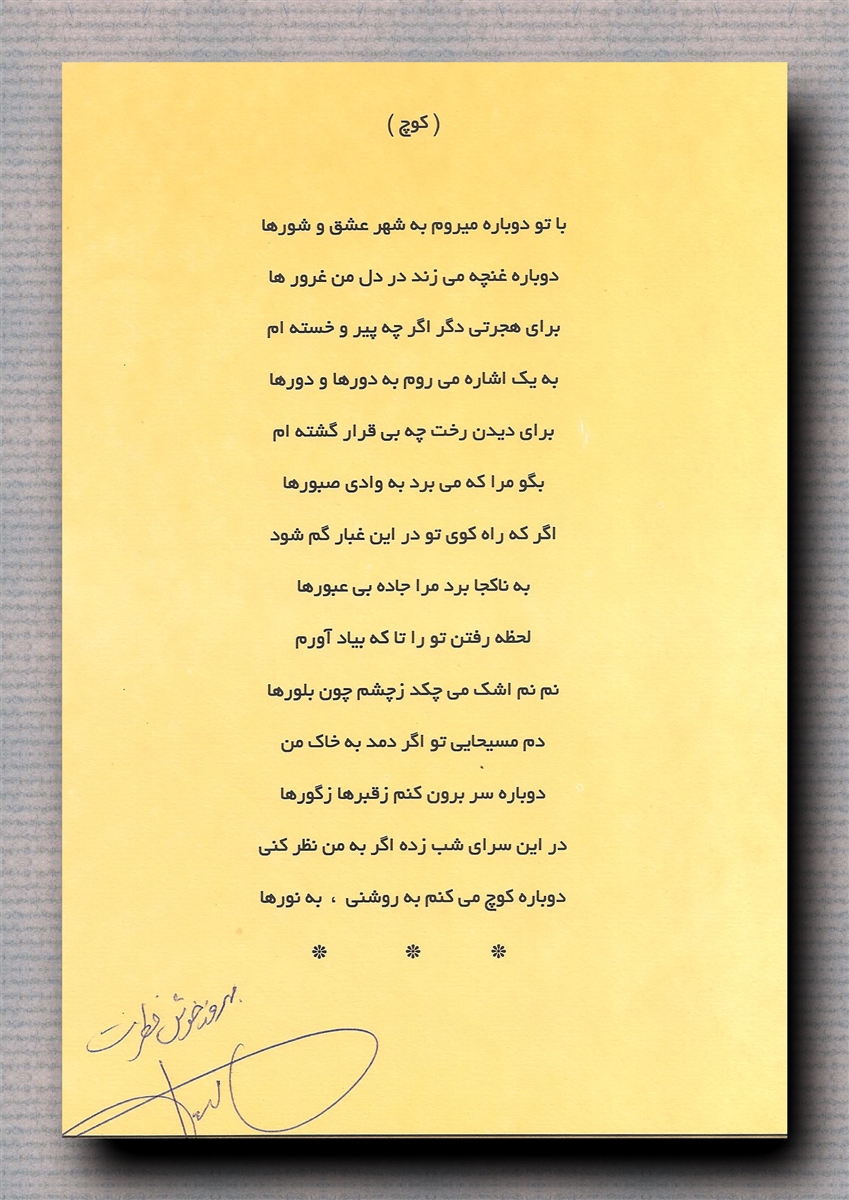 ( کوچ )
با تو دوباره میروم به شهر عشق و شورها
دوباره غنچه می زند در دل من غرور ها
برای هجرتی دگر اگر چه پیر و خسته ام
به یک اشاره می روم به دورها و دورها
برای دیدن رخت چه بی قرار گشته ام
بگو مرا که می برد به وادی صبورها
اگر که راه کوی تو در این غبار گم شود
به ناکجا برد مرا جاده بی عبورها
لحظه رفتن تو را تا که بیاد آورم
نم نم اشک می چکد زچشم چون بلورها
دم مسیحایی تو اگر دمد به خاک من
دوباره سر برون کنم زقبرها زگورها
در این سرای شب زده اگر به من نظر کنی
دوباره کوچ می کنم به روشنی ، به نورها
بهروز خوش فطرت